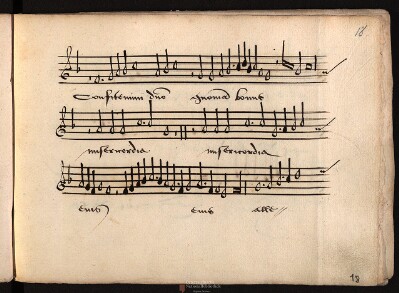 18
Confitemini dno quoniã bonus
misericordia misericordia
eius eius alle
18